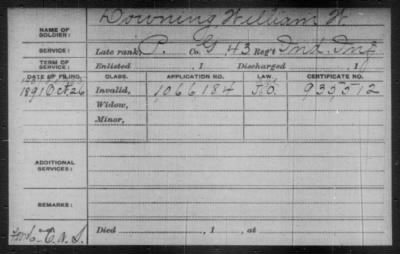 NAME OF SOLDIER: Downing, William W.
SERVICE: Late rank, P. Co. G 43 Reg't Ind. Inf.
TERM OF SERVICE: Enlisted , 1 Discharged , 1
DATE OF FILING. CLASS. APPLICATION NO. LAW. CERTIFICATE NO.
1891 Oct 26 Invalid, 1066184 J.O. 935512
Widow,
Minor,
ADDITIONAL SERVICES:
REMARKS:
Died , 1 , at